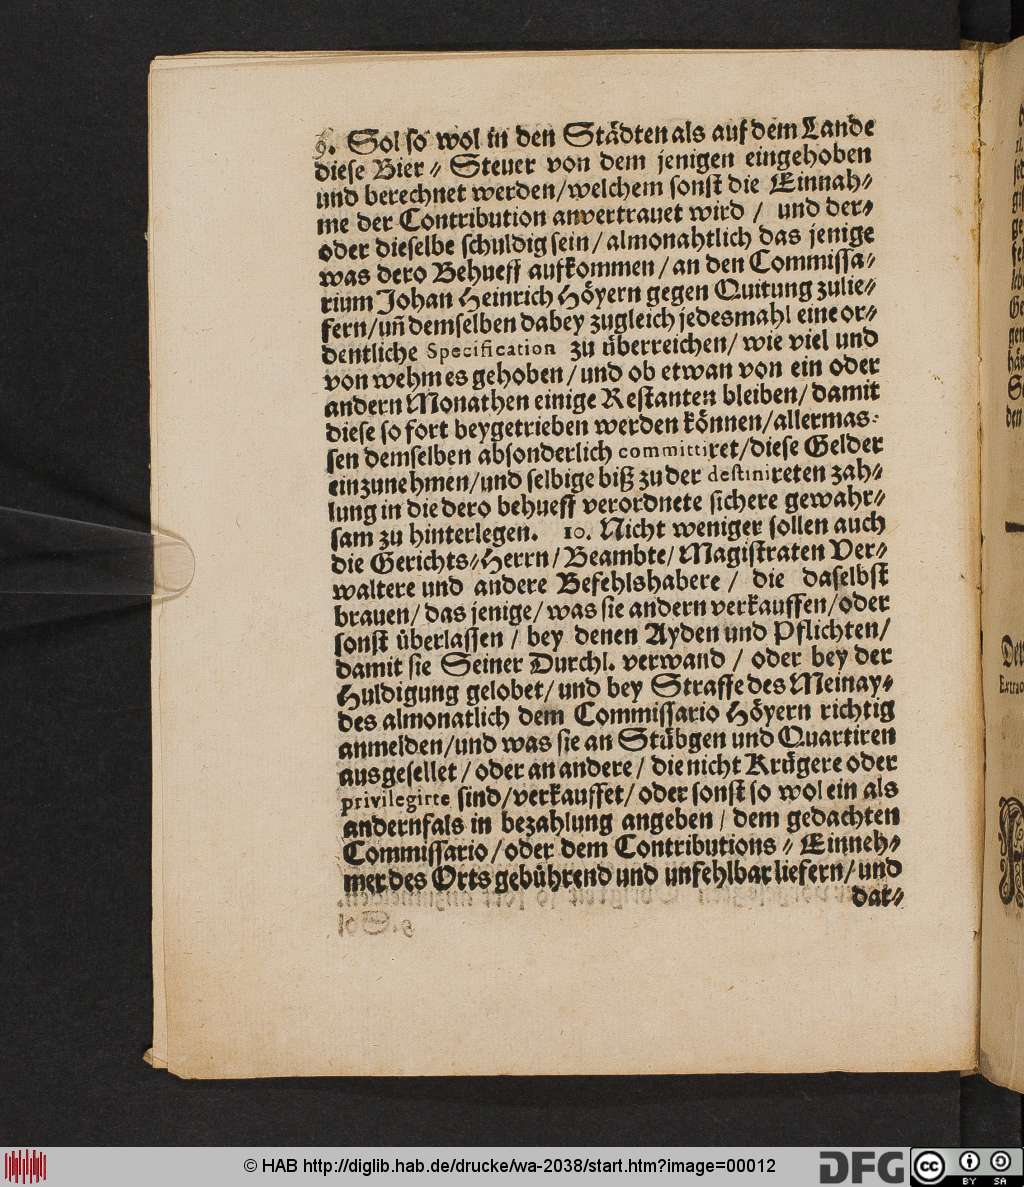 9. Sol so wol in den Städten als auf dem Lande
diese Bier⸗Steuer von dem jenigen eingehoben
und berechnet werden/welchem sonst die Einnah⸗
me der Contribution anvertrauet wird / und der⸗
oder dieselbe schuldig sein/almonahtlich das jenige
was dero Behueff aufkommen/an den Commissa⸗
rium Johan Heinrich Höyern gegen Quitung zulie⸗
fern/uñ demselben dabey zugleich jedesmahl eine or⸗
dentliche Specification zu überreichen/wie viel und
von wehm es gehoben/und ob etwan von ein oder
andern Monathen einige Restanten bleiben/damit
diese so fort beygetrieben werden können/allermas⸗
sen demselben absonderlich committiret/diese Gelder
einzunehmen/und selbige biß zu der destinireten zah⸗
lung in die dero behueff verordnete sichere gewahr⸗
sam zu hinterlegen. 10. Nicht weniger sollen auch
die Gerichts⸗Herrn/Beambte/Magistraten Ver⸗
waltere und andere Befehlshabere / die daselbst
brauen/das jenige/was sie andern verkauffen/oder
sonst überlassen / bey denen Ayden und Pflichten/
damit sie Seiner Durchl. verwand / oder bey der
Huldigung gelobet/und bey Straffe des Meinay⸗
des almonatlich dem Commissario Höyern richtig
anmelden/und was sie an Stübgen und Quartiren
ausgesellet/oder an andere/die nicht Krügere oder
privilegirte sind/verkauffet/oder sonst so wol ein als
andernfals in bezahlung angeben/dem gedachten
Commissario/oder dem Contributions⸗Einneh⸗
mer des Orts gebührend und unfehlbar liefern/und
dar⸗
© HAB http://diglib.hab.de/drucke/wa-2038/start.htm?image=00012
DFG
cc
BY SA